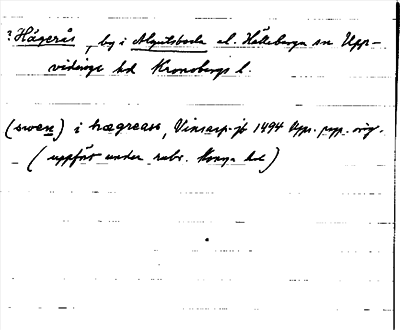 ? Hägerås, by i Algutsboda el. Hälleberga sn Upp-
vidinge hd Kronobergs l.
(swen) i hægreaas, Vinsarp. jb 1494 Upps. pap. orig.
(uppfört under rubr. Konga hd)